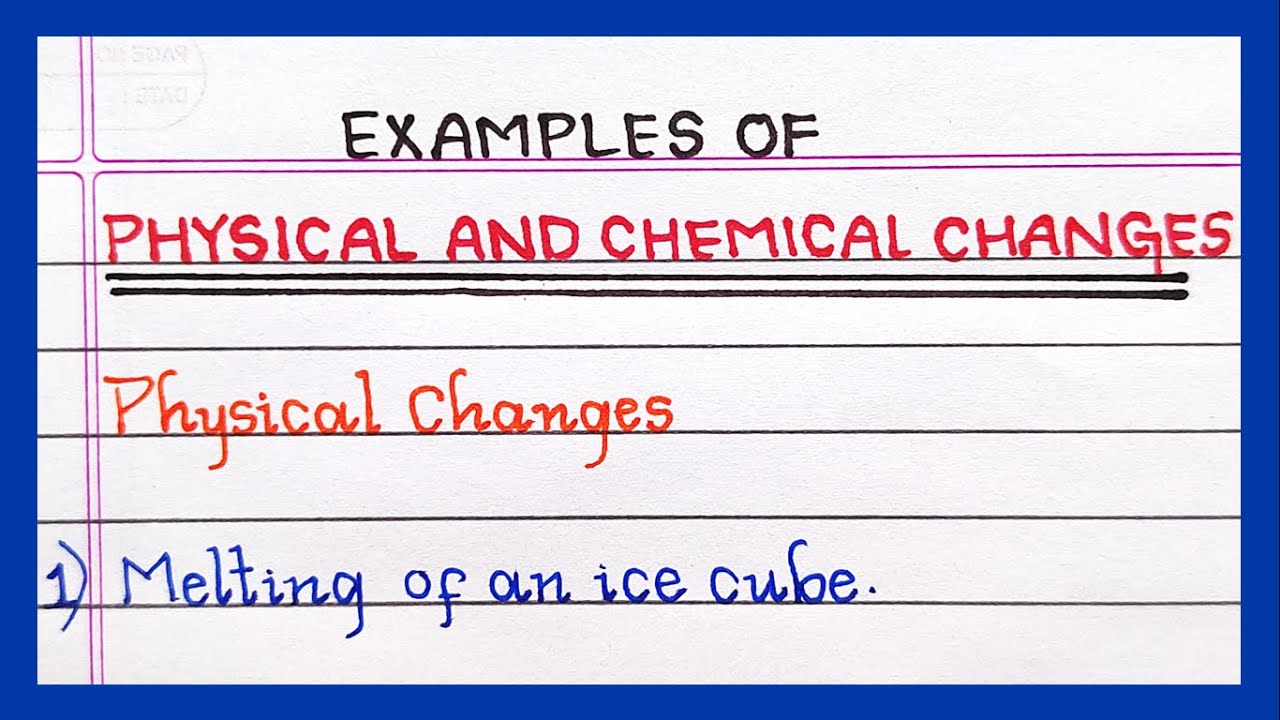 EXAMPLES OF
PHYSICAL AND CHEMICAL CHANGES
Physical Changes
1) Melting of an ice cube.